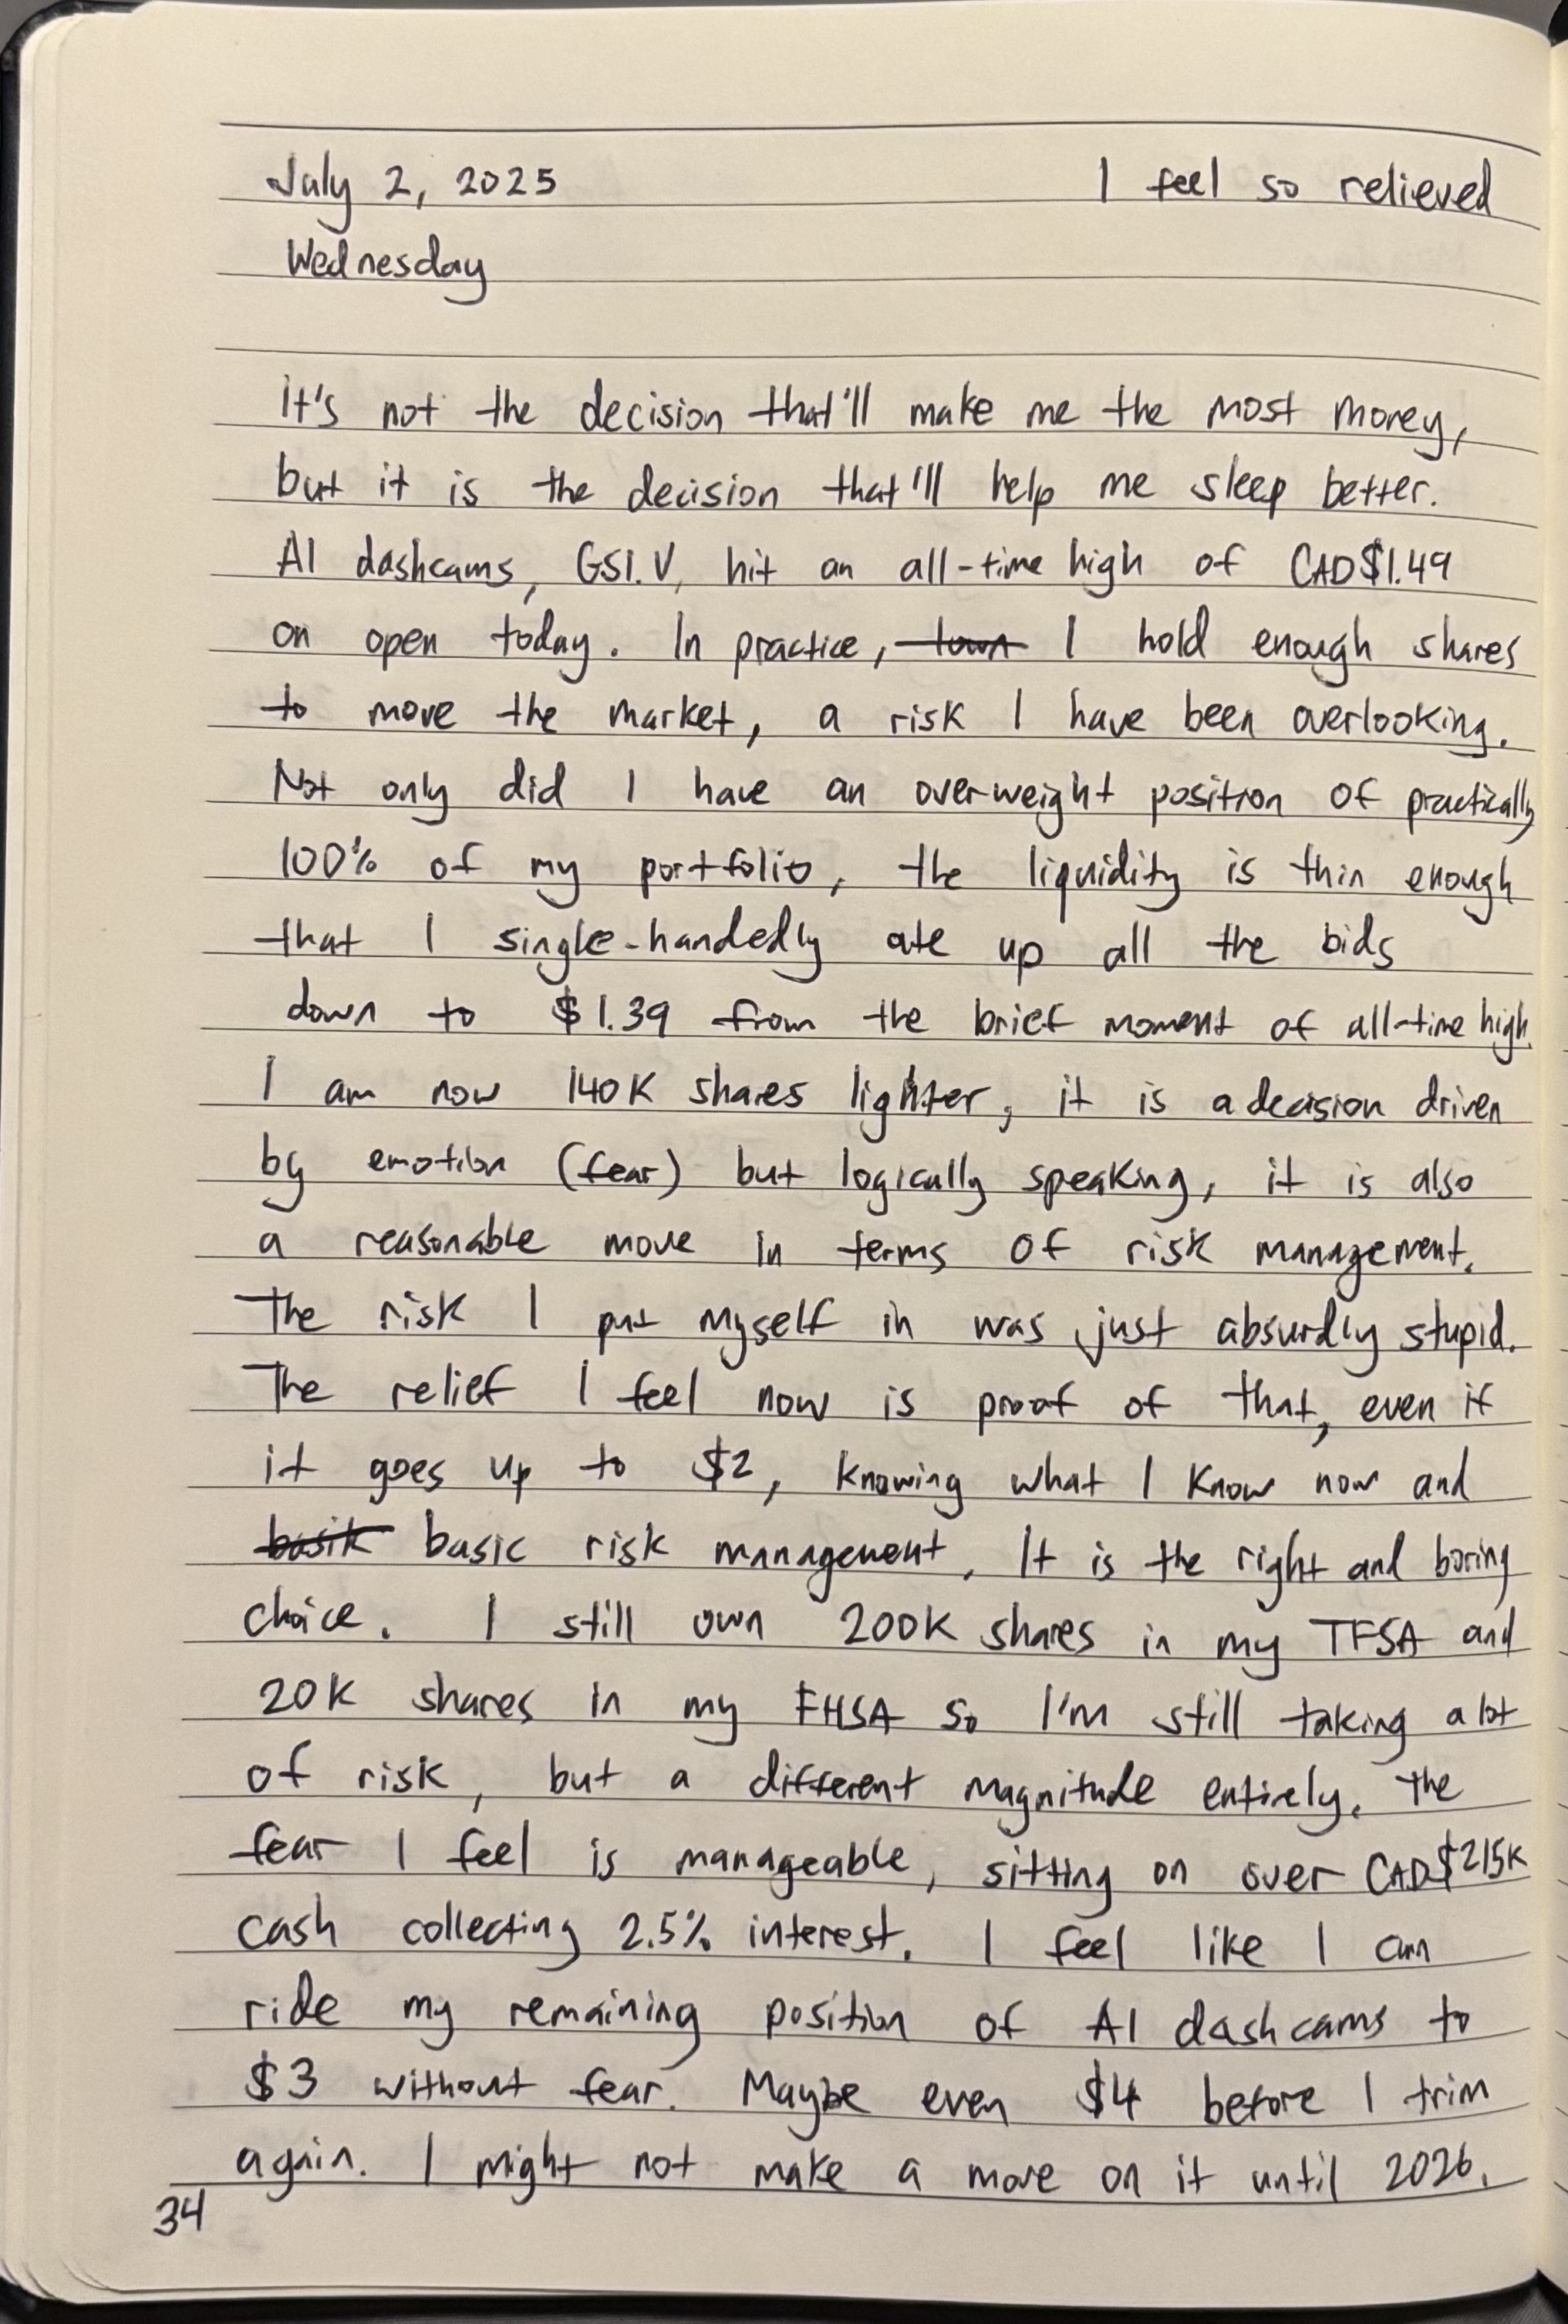 July 2, 2025 I feel so relieved
Wednesday
It's not the decision that'll make me the most money,
but it is the decision that'll help me sleep better.
AI dashcams, GSI.V, hit an all-time high of CAD$1.49
on open today. In practice, I hold enough shares
to move the market, a risk I have been overlooking.
Not only did I have an overweight position of practically
100% of my portfolio, the liquidity is thin enough
that I single-handedly ate up all the bids
down to $1.39 from the brief moment of all-time high.
I am now 140K shares lighter, it is a decision driven
by emotion (fear) but logically speaking, it is also
a reasonable move in terms of risk management.
The risk I put myself in was just absurdly stupid.
The relief I feel now is proof of that, even if
it goes up to $2, knowing what I know now and
basic risk management. It is the right and boring
choice. I still own 200K shares in my TFSA and
20K shares in my FHSA so I'm still taking a lot
of risk, but a different magnitude entirely. The
fear I feel is manageable, sitting on over CAD$215K
cash collecting 2.5% interest. I feel like I can
ride my remaining position of AI dashcams to
$3 without fear. Maybe even $4 before I trim
again. I might not make a move on it until 2026.
34